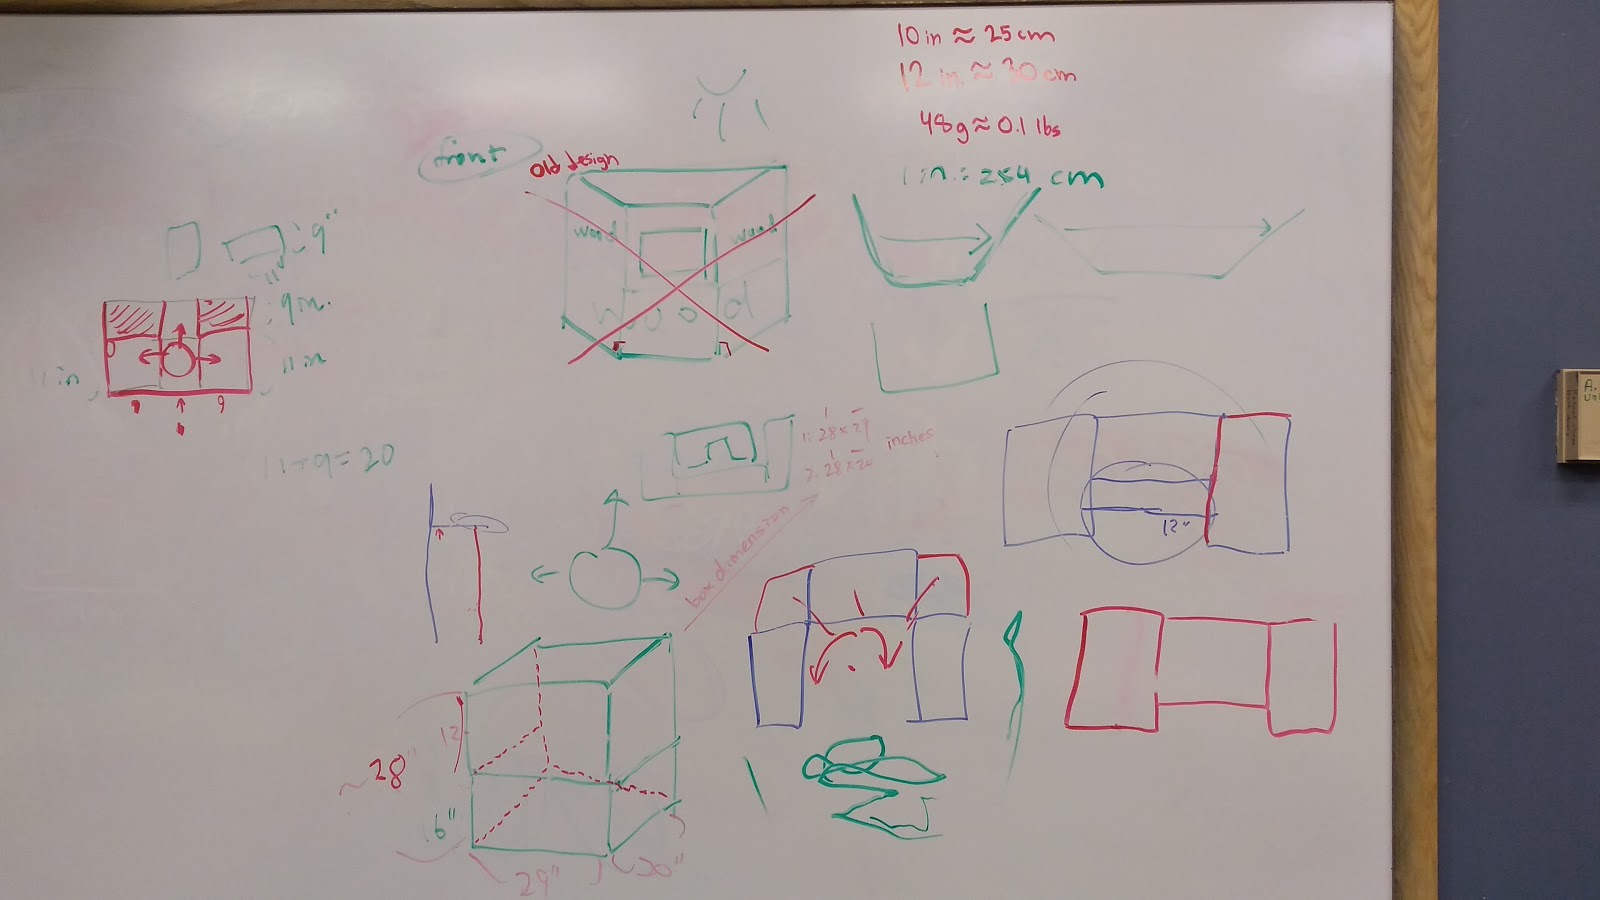 10 in ≈ 25 cm
12 in. ≈ 30 cm
48g ≈ 0.1 lbs
1 in. = 254 cm
front
old design
wood
wood
wood
9"
9 in.
11 in
11 in
9
11+9=20
1: 28 x 29
2: 28 x 20
inches
box dimension
12"
12
~28"
16"
29"
20"
A.